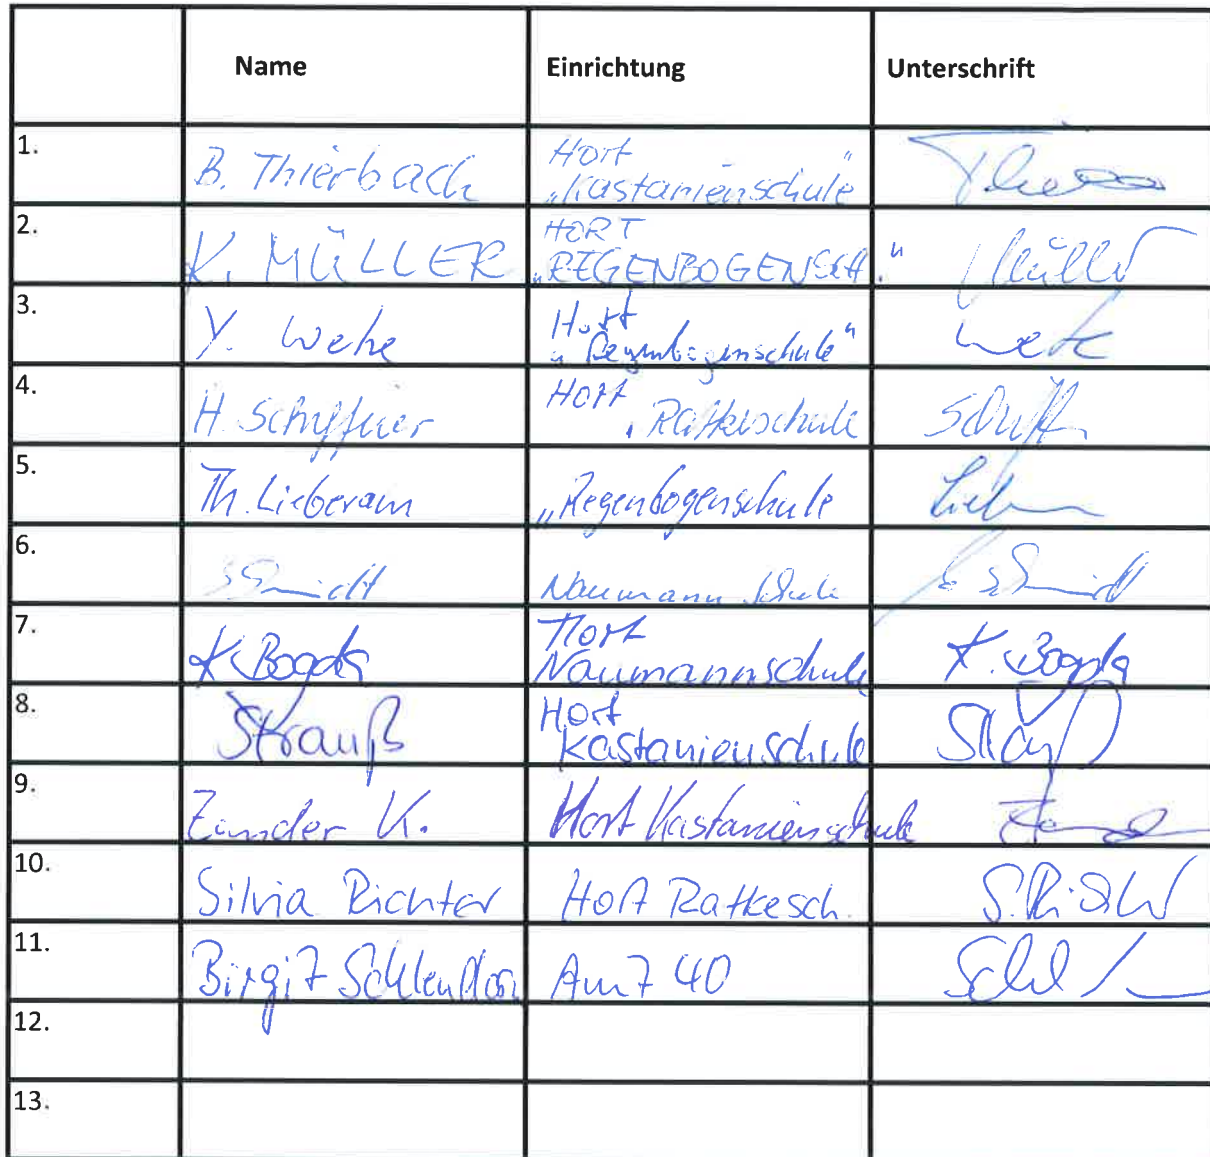 Name Einrichtung Unterschrift
1. B. Thierbach Hort
„Kastanienschule"
2. K. MÜLLER HORT
„REGENBOGENSCH." Müller
3. Y. Wehe Hort
„Regenbogenschule"
4. H. Schiffner Hort
Ratkeschule
5. Th. Lieberam „Regenbogenschule
6. Schmidt Naumann Schule Schmidt
7. K. Bogda Hort
Naumannschule K. Bogda
8. Strauß Hort
Kastanienschule
9. Zander K. Hort Kastanienschule
10. Silvia Richter Hort Ratkesch.
11. Birgit Amt 40
12.
13.